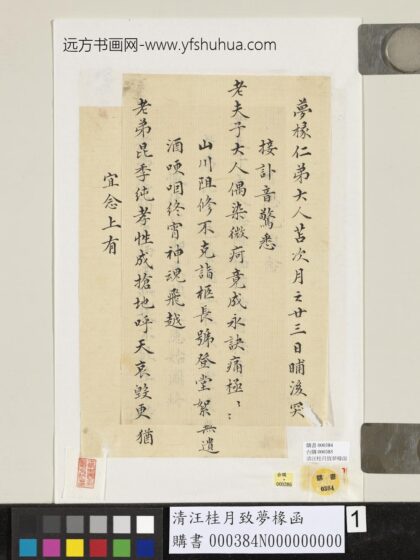 远方书画网-www.yfshuhua.com
夢椽仁弟大人苫次月之廿三日晡後突
接訃音驚悉
老夫子大人偶染微疴竟成永訣痛極〻〻
山川阻修不克詣柩長號登堂絮無遺
酒哽咽終宵神魂飛越
老弟昆季純孝性成搶地呼天哀毀更猶
宜念上有
購書 000384
台購 000385
清汪桂月致夢椽函
購書
0384
清汪桂月致夢椽函
購書 000384N000000000
1